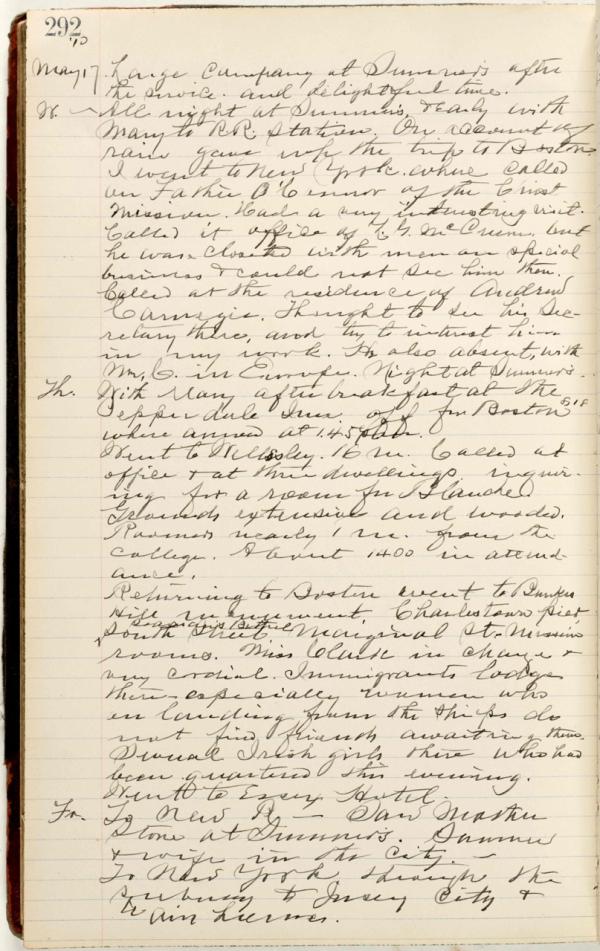 292
'10
May 17. Large company at Sumner's after
the service. and delightful time.
W. — All night at Sumners, & early with
Mary to R.R. Station. On account of
rain gave up the trip to Boston.
I went to New York. where called
on Father O'Connor of the Christ
Mission. Had a very interesting visit.
Called it office of but
he was closeted with men on special
business & could not see him then.
Called at the residence of Andrew
Carnegie. Thought to see his Sec-
retary there, and try to interest him
in my work. He also absent, with
Mr. C. in Europe. Night at Sumners.
Th. With Mary after breakfast at the
Pepperdale Inn off for Boston
where arrived at 1.45
Went to Wellesley. 16 m. Called at
office & at three dwellings inquir-
ing for a room for Blanche.
Grounds extensive and wooded.
Rooms nearly 1 m. from the
College. About 1400 in attend-
ance.
Returning to Boston went to Bunker
Hill monument, Charlestown pier,
Seaman's Bethel
South Street, Marginal St. Mission
rooms. Miss Clark in charge &
very cordial. Immigrants lodge
there especially women who
on landing from the ships do
not find friends awaiting them.
Several Irish girls there who had
been quartered this evening.
Went to Essex Hotel.
Fr. To New R — Saw Mother
Stone at Sumner's. Sumner
& wife in the city. —
To New York, through the
subway to Jersey City &
train